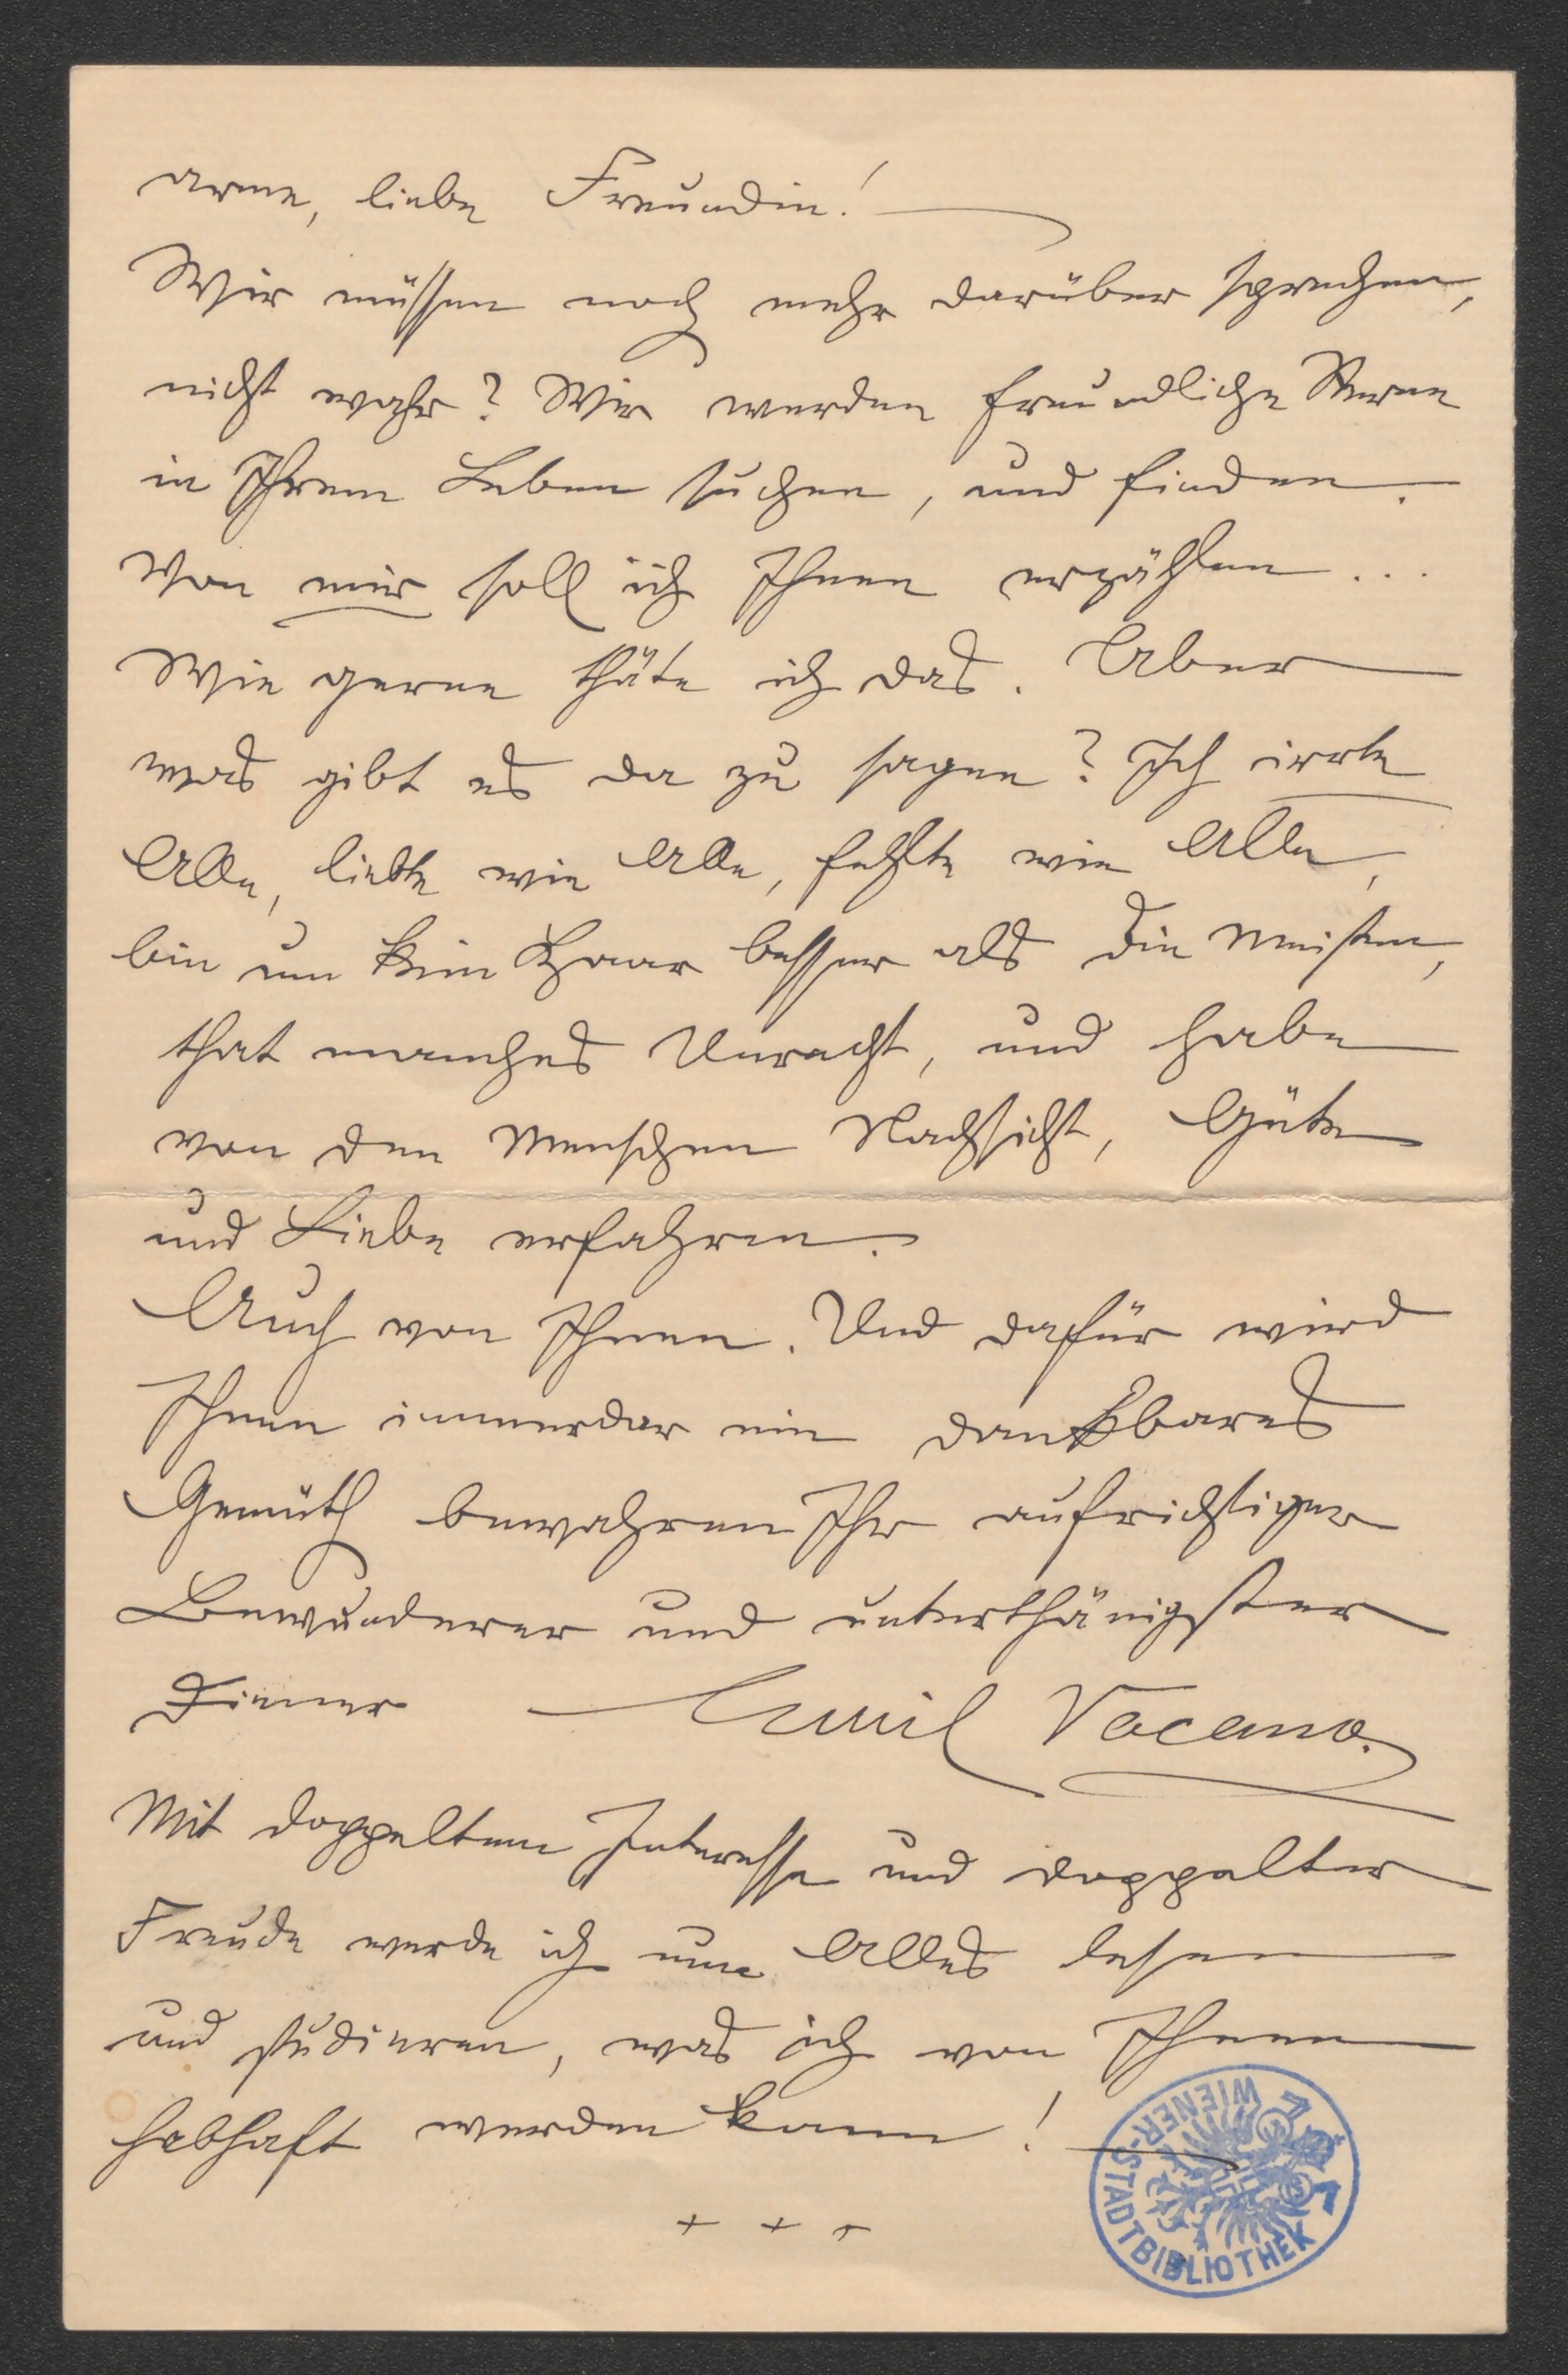 arme, liebe Freundin! —
Wir müssen noch mehr darüber sprechen,
nicht wahr? Wir werden freundliche Sterne
in Ihrem Leben suchen, und finden.
Von mir soll ich Ihnen erzählen ...
Wie gerne thäte ich das. Aber
was gibt es da zu sagen? Ich irrte
Alle, liebte wie Alle, fehlte wie Alle,
bin um kein Haar besser als die Meisten,
that manches Unrecht, und habe
von den Menschen Nachsicht, Güte
und Liebe erfahren.
Auch von Ihnen. Und dafür wird
Ihnen immerdar ein dankbares
Gemüth bewahren Ihr aufrichtiger
Bewunderer und unterthänigster
Diener Emil Vacano.
Mit doppeltem Interesse und doppelter
Freude werde ich nun Alles lesen
und studieren, was ich von Ihnen
habhaft werden kann! —
+ + +
WIENER-STADTBIBLIOTHEK